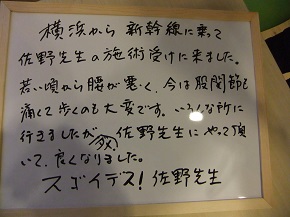 横浜から 新幹線に乗って
佐野先生の施術受けに来ました。
若い頃から腰が悪く、今は股関節も
痛くて歩くのも大変です。いろんな所に
行きましたが ダメ 佐野先生にやって頂
いて、良くなりました。
スゴイデス! 佐野先生